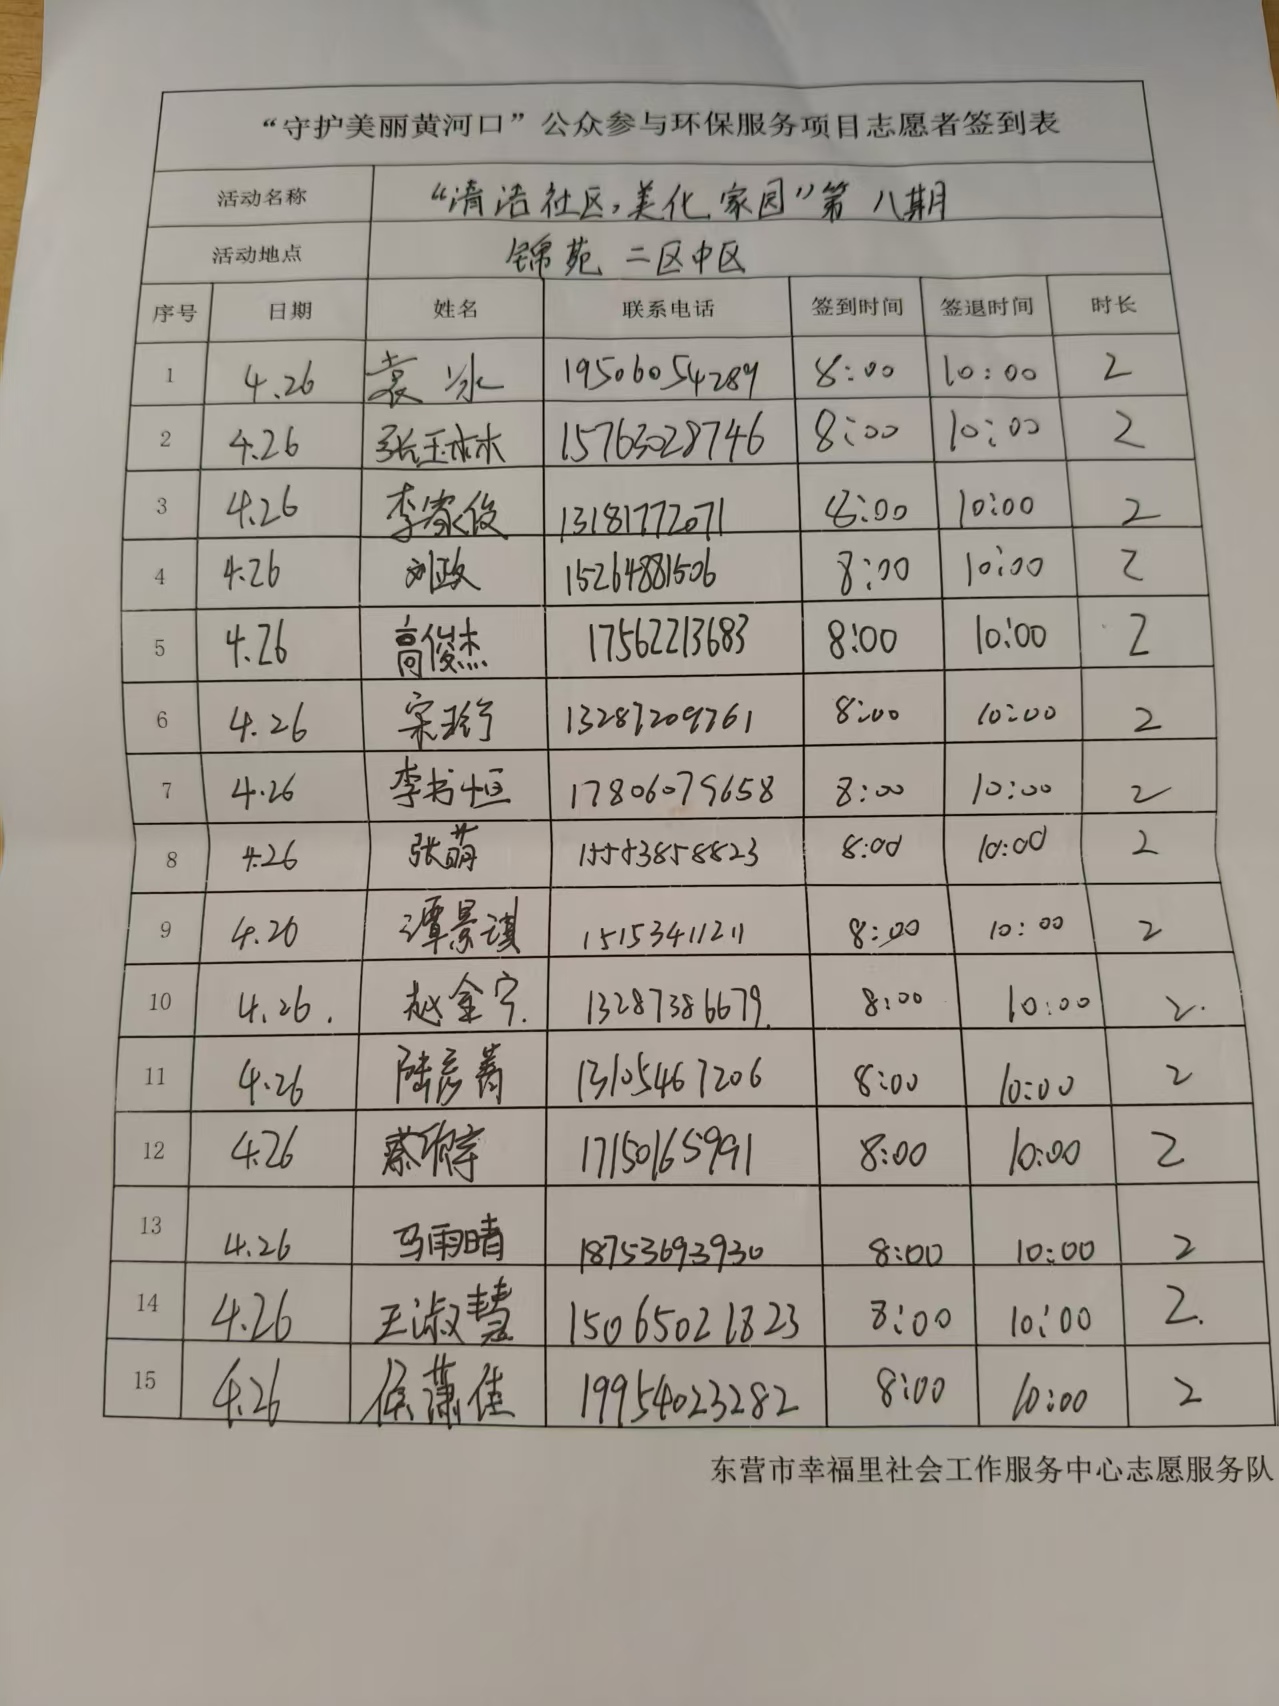 “守护美丽黄河口”公众参与环保服务项目志愿者签到表
活动名称 “清洁社区,美化家园”第八期
活动地点 锦苑二区中区
序号 日期 姓名 联系电话 签到时间 签退时间 时长
1 4.26 袁冰 19506054289 8:00 10:00 2
2 4.26 张玉林 15763028746 8:00 10:00 2
3 4.26 李家俊 13181772071 8:00 10:00 2
4 4.26 刘政 15264881506 8:00 10:00 2
5 4.26 高俊杰 17562213683 8:00 10:00 2
6 4.26 宋 13287209761 8:00 10:00 2
7 4.26 李书恒 17806079658 8:00 10:00 2
8 4.26 张萌 15553858823 8:00 10:00 2
9 4.26 谭景琪 15153411211 8:00 10:00 2
10 4.26. 赵金宁. 13287386679. 8:00 10:00 2.
11 4.26 陆彦菁 13105467206 8:00 10:00 2
12 4.26 蔡欣宇 17150165991 8:00 10:00 2
13 4.26 马雨晴 18753693930 8:00 10:00 2
14 4.26 王淑慧 15065021823 8:00 10:00 2.
15 4.26 侯潇佳 19954023282 8:00 10:00 2
东营市幸福里社会工作服务中心志愿服务队